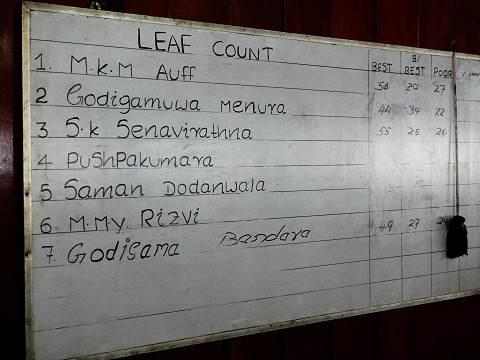 LEAF COUNT
BEST B/BEST POOR
1. M.K.M Auff 53 20 27
2 Godigamuwa Menura 44 34 22
3 S.K Senavirathna 55 25 20
4 PuShPakumara
5 Saman Dodanwala
6. M.My. Rizvi 49 27
7. Godigama Bandara